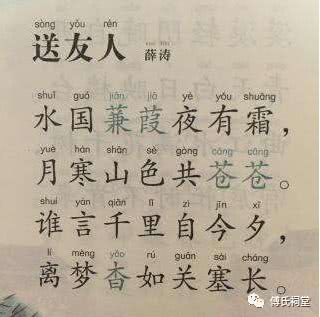 sòng yǒu rén
送友人 薛涛
shuǐ guó jiān jiā yè yǒu shuāng
水国蒹葭夜有霜，
yuè hán shān sè gòng cāng cāng
月寒山色共苍苍。
shuí yán qiān lǐ zì jīn xī
谁言千里自今夕，
lí mèng yǎo rú guān sài cháng
离梦杳如关塞长。
傅氏祠堂